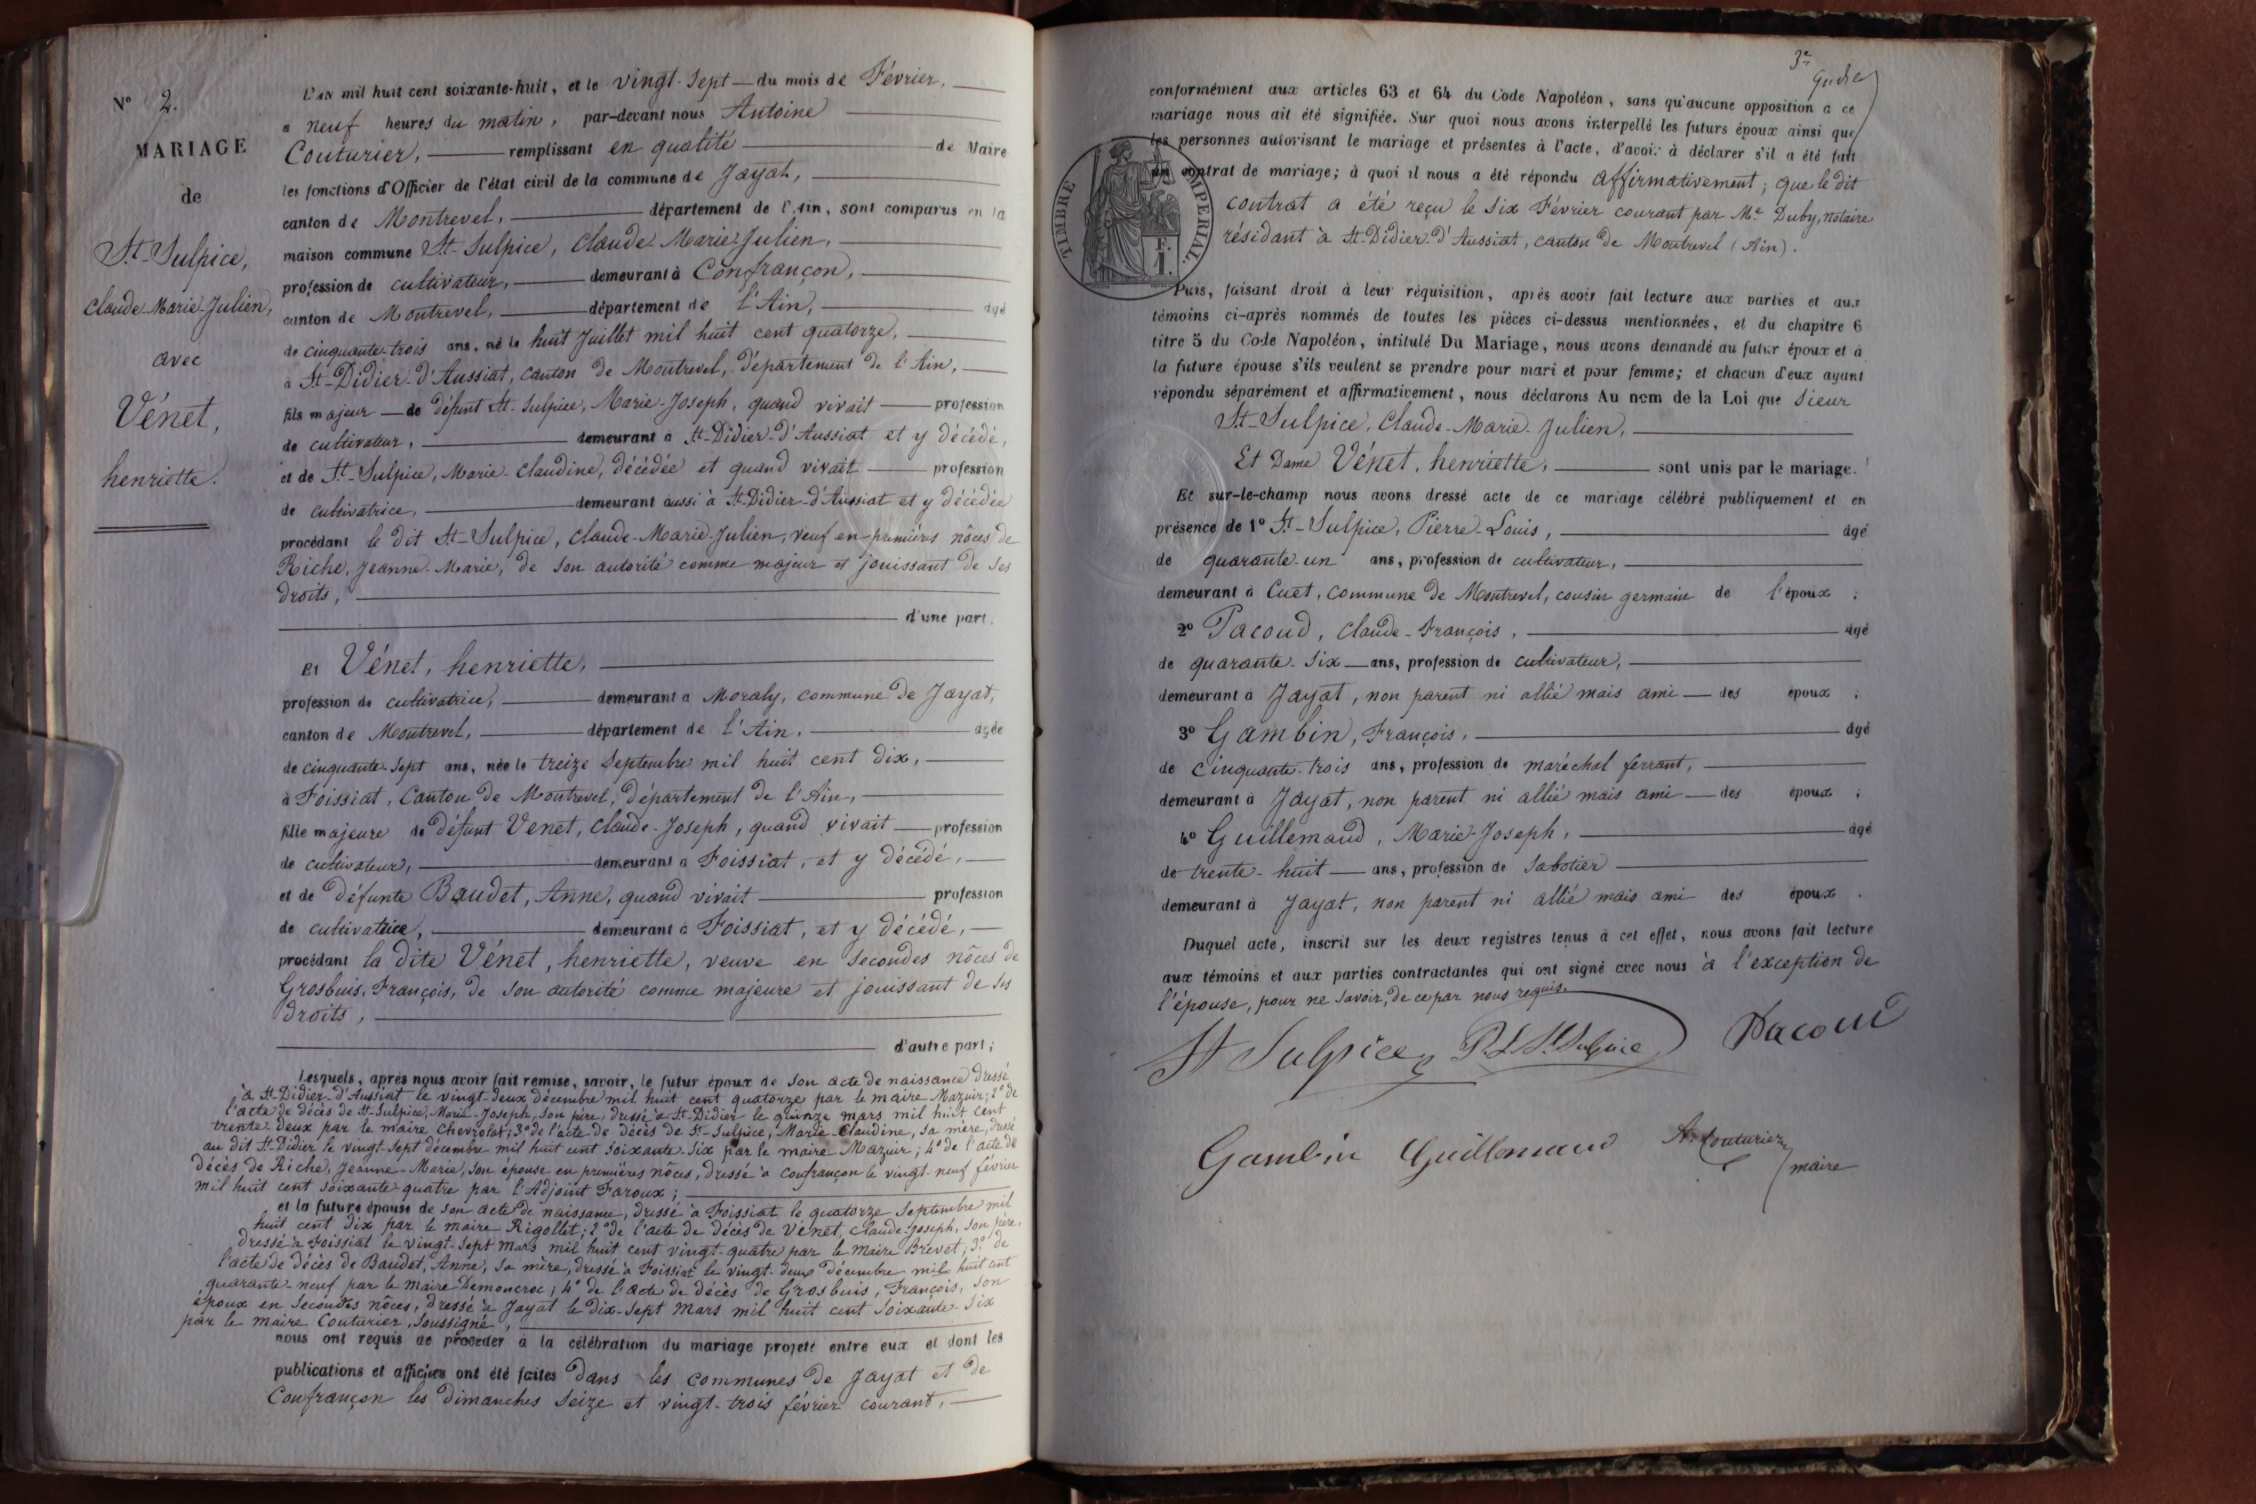 N° 2.
MARIAGE
de
St-Sulpice,
Claude-Marie-Julien,
avec
Vénet,
henriette.
L'AN mil huit cent soixante-huit, et le vingt-sept du mois de Février,
a neuf heures du matin, par-devant nous Antoine
Couturier, remplissant en qualité de Maire
les fonctions d'Officier de l'état civil de la commune de Jayat,
canton de Montrevel, département de l'Ain, sont comparus en la
maison commune St-Sulpice, Claude-Marie-Julien,
profession de cultivateur, demeurant à Confrançon,
canton de Montrevel, département de l'Ain, âgé
de cinquante-trois ans, né le huit Juillet mil huit cent quatorze,
à St-Didier-d'Aussiat, canton de Montrevel, département de l'Ain,
fils majeur de défunt St-Sulpice, Marie-Joseph, quand vivait profession
de cultivateur, demeurant à St-Didier-d'Aussiat et y décédé,
et de St-Sulpice, Marie-Claudine, décédée et quand vivait profession
de cultivatrice, demeurant aussi à St-Didier-d'Aussiat et y décédée
procédant le dit St-Sulpice, Claude-Marie-Julien, veuf en premières nôces de
Riche, Jeanne-Marie, de son autorité comme majeur et jouissant de ses
droits,
d'une part.
Et Vénet, henriette,
profession de cultivatrice, demeurant à Moraly, commune de Jayat,
canton de Montrevel, département de l'Ain, âgée
de cinquante-sept ans, née le treize Septembre mil huit cent dix,
à Foissiat, Canton de Montrevel, département de l'Ain,
fille majeure de défunt Vénet, Claude-Joseph, quand vivait profession
de cultivateur, demeurant à Foissiat, et y décédé,
et de défunte Baudet, Anne, quand vivait profession
de cultivatrice, demeurant à Foissiat, et y décédé,
procédant la dite Vénet, henriette, veuve en secondes nôces de
Grosbuis, François, de son autorité comme majeure et jouissant de ses
droits,
d'autre part;
Lesquels, après nous avoir fait remise, savoir, le futur époux de son acte de naissance dressé
à St-Didier-d'Aussiat le vingt-deux décembre mil huit cent quatorze par le maire Mazuir; 2° de
l'acte de décès de St-Sulpice, Marie-Joseph, son père, dressé à St-Didier le quinze mars mil huit cent
trente-deux par le maire Chevrolat; 3° de l'acte de décès de St-Sulpice, Marie-Claudine, sa mère, dressé
au dit St-Didier le vingt-sept décembre mil huit cent soixante-six par le maire Mazuir; 4° de l'acte de
décès de Riche, Jeanne-Marie, son épouse en premières nôces, dressé à Confrançon le vingt-neuf février
mil huit cent soixante-quatre par l'Adjoint Faroux;
et la future épouse de son acte de naissance, dressé à Foissiat le quatorze Septembre mil
huit cent dix par le maire Rigollet; 2° de l'acte de décès de Vénet, Claude-Joseph, son père,
dressé à Foissiat le vingt-sept Mars mil huit cent vingt-quatre par le Maire Brevet; 3° de
l'acte de décès de Baudet, Anne, sa mère, dressé à Foissiat le vingt-deux Décembre mil huit cent
quarante-neuf par le maire Demoncroc; 4° de l'acte de décès de Grosbuis, François, son
époux en secondes nôces, dressé à Jayat le dix-sept Mars mil huit cent soixante-six
par le maire Couturier, soussigné,
nous ont requis de procéder à la célébration du mariage projeté entre eux et dont les
publications et affiches ont été faites dans les communes de Jayat et de
Confrançon les dimanches seize et vingt-trois février courant,
3e
conformément aux articles 63 et 64 du Code Napoléon, sans qu'aucune opposition a ce
mariage nous ait été signifiée. Sur quoi nous avons interpellé les futurs époux ainsi que
les personnes autorisant le mariage et présentes à l'acte, d'avoir à déclarer s'il a été fait
un contrat de mariage; à quoi il nous a été répondu affirmativement; que le dit
contrat a été reçu le six Février courant par Me Duby, notaire
résidant à St-Didier-d'Aussiat, canton de Montrevel (Ain).
TIMBRE IMPERIAL.
F.
1.
Puis, faisant droit à leur réquisition, après avoir fait lecture aux parties et aux
témoins ci-après nommés de toutes les pièces ci-dessus mentionnées, et du chapitre 6
titre 5 du Code Napoléon, intitulé Du Mariage, nous avons demandé au futur époux et à
la future épouse s'ils veulent se prendre pour mari et pour femme; et chacun d'eux ayant
répondu séparément et affirmativement, nous déclarons Au nom de la Loi que Sieur
St-Sulpice, Claude-Marie-Julien,
Et Dame Vénet, henriette, sont unis par le mariage.
Et sur-le-champ nous avons dressé acte de ce mariage célébré publiquement et en
présence de 1° St-Sulpice, Pierre-Louis, âgé
de quarante-un ans, profession de cultivateur,
demeurant à Cuet, commune de Montrevel, cousin germain de l'époux;
2° Pacoud, Claude-François, âgé
de quarante-six ans, profession de cultivateur,
demeurant à Jayat, non parent ni allié mais ami des époux;
3° Gambin, François, âgé
de cinquante-trois ans, profession de maréchal ferrant,
demeurant à Jayat, non parent ni allié mais ami des époux;
4° Guillemaud, Marie-Joseph, âgé
de trente-huit ans, profession de sabotier
demeurant à Jayat, non parent ni allié mais ami des époux.
Duquel acte, inscrit sur les deux registres tenus à cet effet, nous avons fait lecture
aux témoins et aux parties contractantes qui ont signé avec nous à l'exception de
l'épouse, pour ne savoir, de ce par nous requis.
St Sulpice P. L. St Sulpice Pacoud
Gambin Guillemaud An Couturier
maire